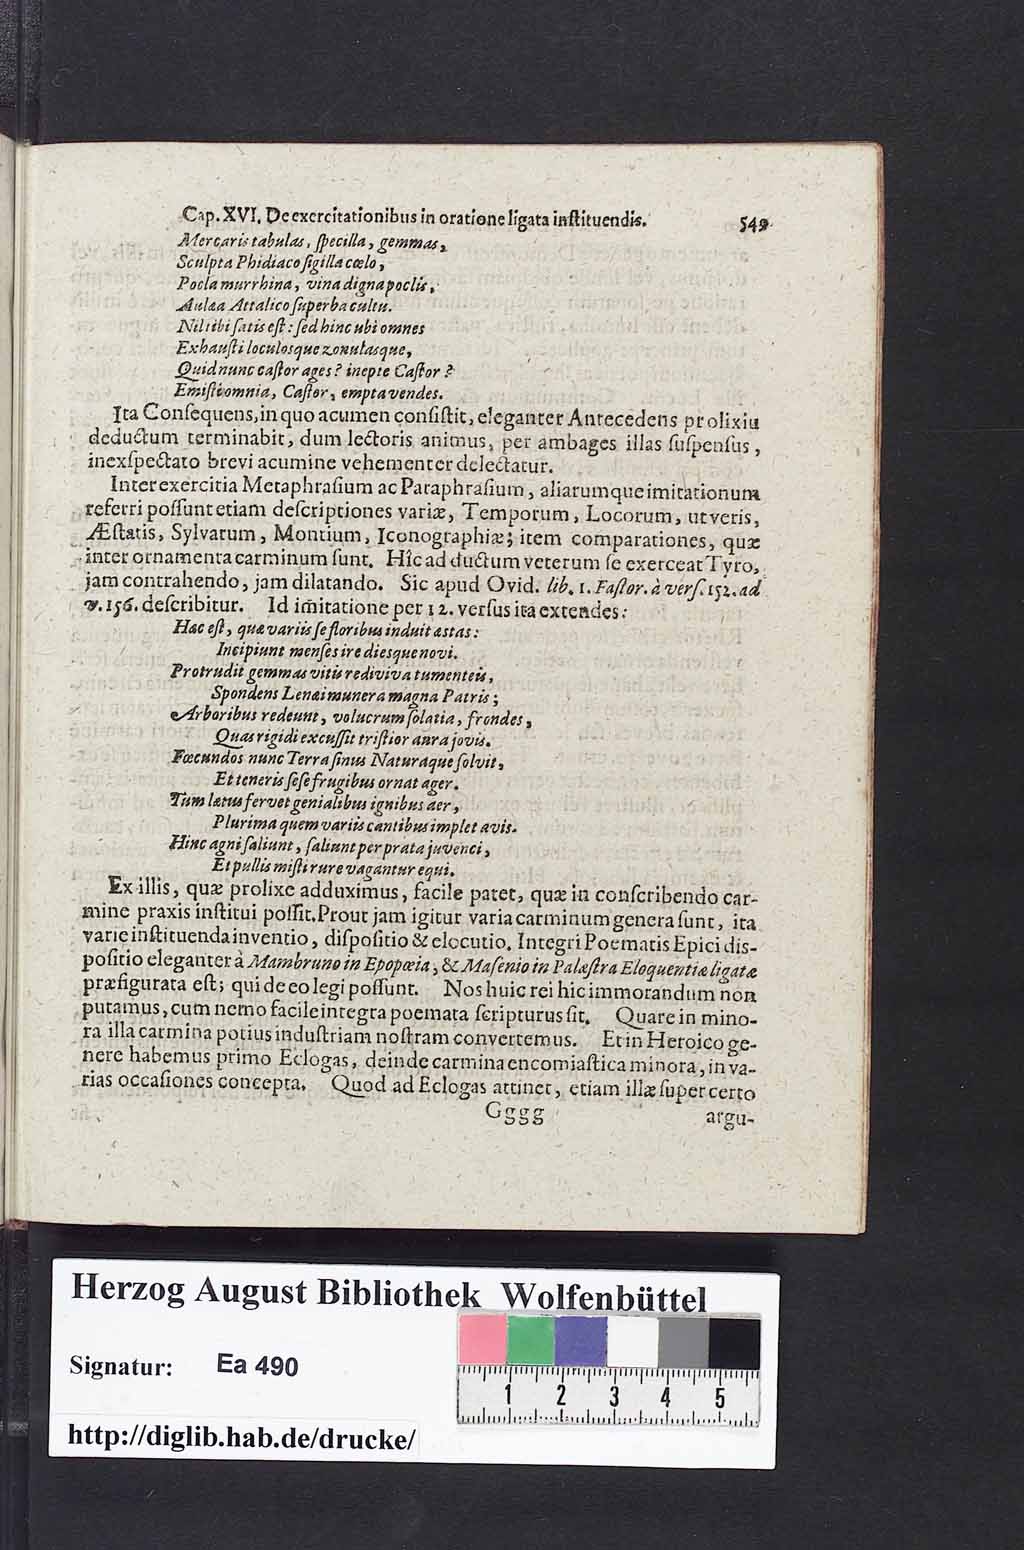 Cap. XVI. De exercitationibus in oratione ligata instituendis. 549
Mercaris tabulas, specilla, gemmas,
Sculpta Phidiaco sigilla cœlo,
Pocla murrhina, vina digna poclis,
Aulæa Attalico superba cultu.
Nil tibi satis est: sed hinc ubi omnes
Exhausti loculosque zonulasque,
Quid nunc castor ages? inepte Castor?
Emisti omnia, Castor, empta vendes.
Ita Consequens, in quo acumen consistit, eleganter Antecedens prolixiu
deductum terminabit, dum lectoris animus, per ambages illas suspensus,
inexspectato brevi acumine vehementer delectatur.
Inter exercitia Metaphrasium ac Paraphrasium, aliarumque imitationum
referri possunt etiam descriptiones variæ, Temporum, Locorum, ut veris,
Æstatis, Sylvarum, Montium, Iconographiæ; item comparationes, quæ
inter ornamenta carminum sunt. Hîc ad ductum veterum se exerceat Tyro,
jam contrahendo, jam dilatando. Sic apud Ovid. lib. 1. Fastor. à vers. 152. ad
v. 156. describitur. Id imitatione per 12. versus ita extendes:
Hæc est, quæ variis se floribus induit æstas:
Incipiunt menses ire diesque novi.
Protrudit gemmas vitis rediviva tumenteis,
Spondens Lenæi munera magna Patris;
Arboribus redeunt, volucrum solatia, frondes,
Quas rigidi excussit tristior aura jovis.
Fœcundos nunc Terra sinus Naturaque solvit,
Et teneris sese frugibus ornat ager.
Tum lætus fervet genialibus ignibus aer,
Plurima quem variis cantibus implet avis.
Hinc agni saliunt, saliunt per prata juvenci,
Et pullis misti rure vagantur equi.
Ex illis, quæ prolixe adduximus, facile patet, quæ in conscribendo car-
mine praxis institui possit. Prout jam igitur varia carminum genera sunt, ita
varie instituenda inventio, dispositio & elocutio. Integri Poematis Epici dis-
positio eleganter à Mambruno in Epopœia, & Masenio in Palæstra Eloquentiæ ligatæ
præfigurata est; qui de eo legi possunt. Nos huic rei hic immorandum non
putamus, cum nemo facile integra poemata scripturus sit. Quare in mino-
ra illa carmina potius industriam nostram convertemus. Et in Heroico ge-
nere habemus primo Eclogas, deinde carmina encomiastica minora, in va-
rias occasiones concepta. Quod ad Eclogas attinet, etiam illæ super certo
Gggg argu-
Herzog August Bibliothek Wolfenbüttel
Signatur: Ea 490
1 2 3 4 5
http://diglib.hab.de/drucke/